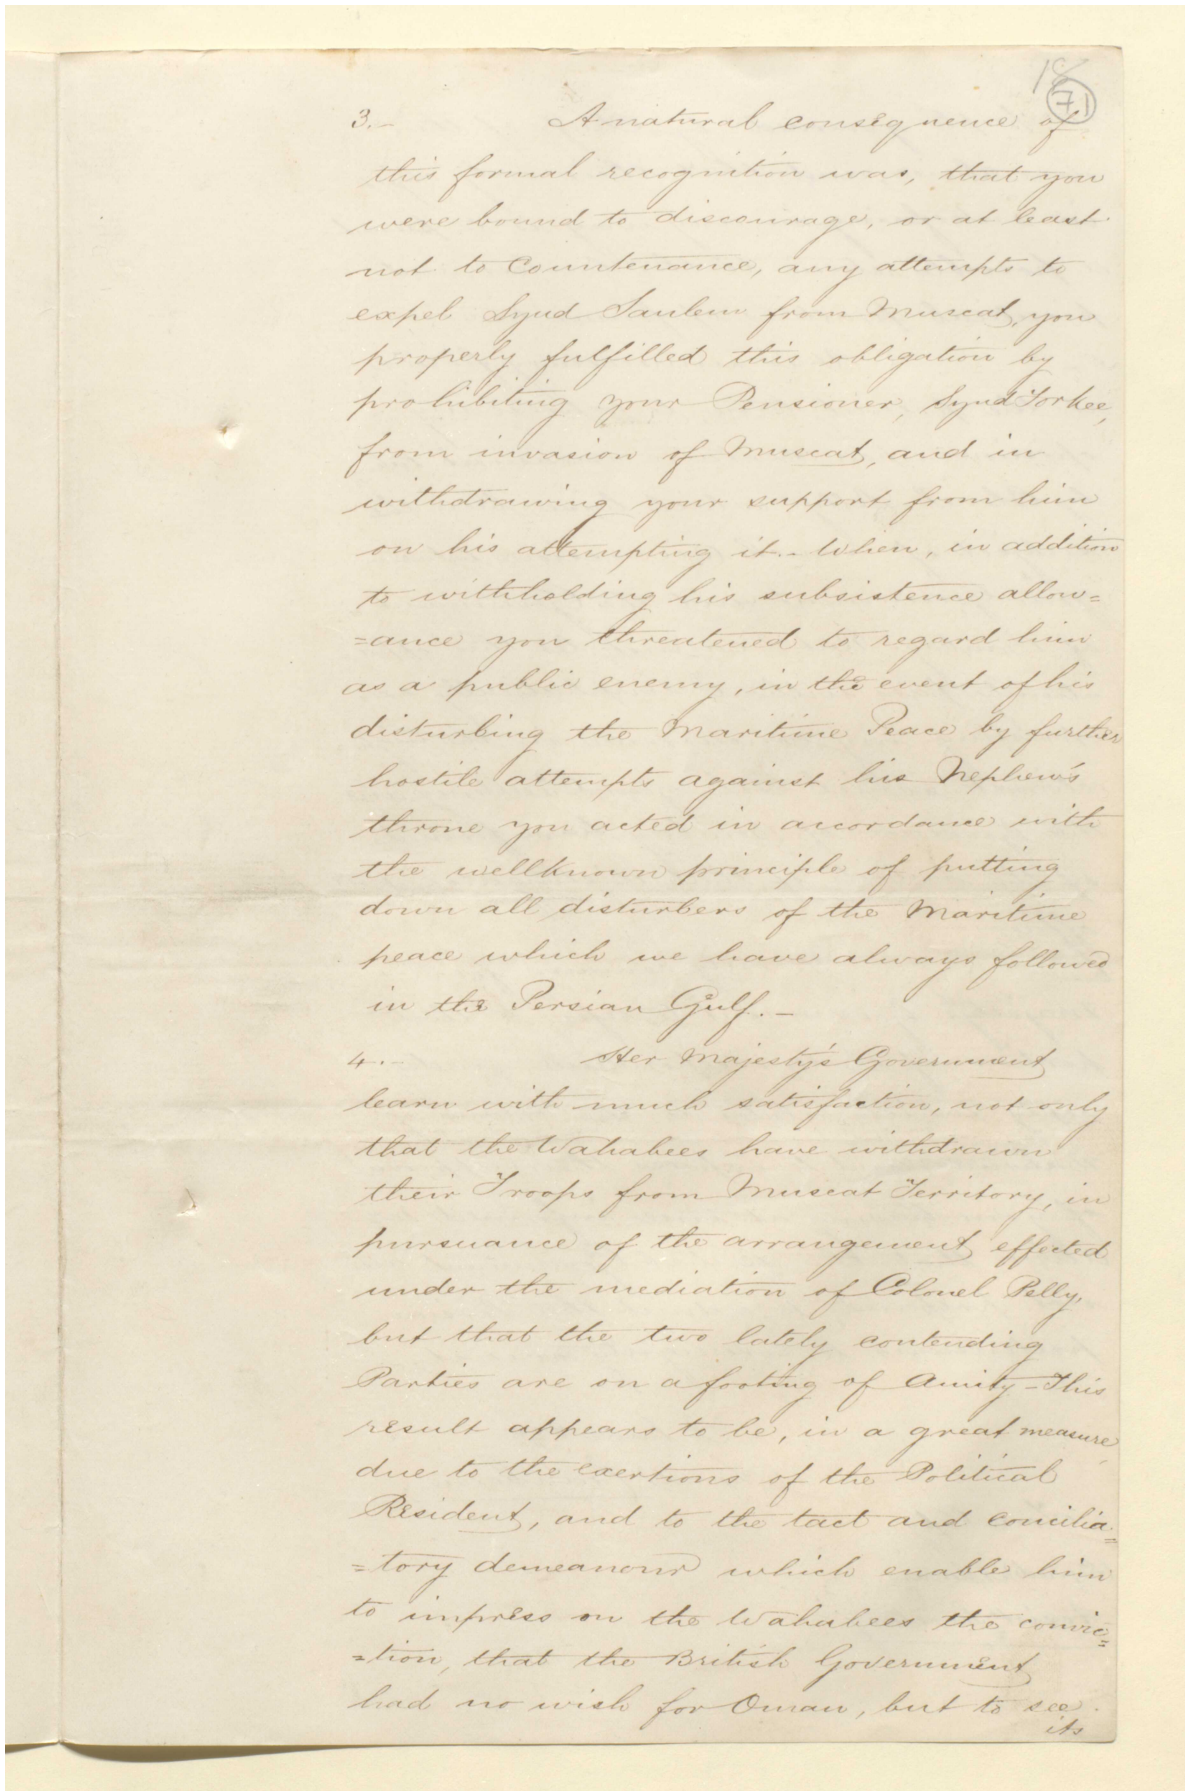 18
71
3.- A natural consequence of
this formal recognition was, that you
were bound to discourage, or at least
not to Countenance, any attempts to
expel Syud Saulem from Muscat, you
properly fulfilled this obligation by
prohibiting your Pensioner, Syud Torkee,
from invasion of Muscat, and in
withdrawing your support from him
on his attempting it.- When, in addition
to withholding his subsistence allow=
=ance you threatened to regard him
as a public enemy, in the event of his
disturbing the Maritime Peace by further
hostile attempts against his Nephew's
throne you acted in accordance with
the wellknown principle of putting
down all disturbers of the Maritime
peace which we have always followed
in the Persian Gulf.-
4.- Her Majesty's Government
learn with much satisfaction, not only
that the Wahabees have withdrawn
their Troops from Muscat Territory, in
pursuance of the arrangement effected
under the mediation of Colonel Pelly,
but that the two lately contending
Parties are on a footing of Amity - This
result appears to be, in a great measure,
due to the exertions of the Political
Resident, and to the tact and concilia=
=tory demeanour which enable him
to impress on the Wahabees the convic=
=tion, that the British Government
had no wish for Oman, but to see
its